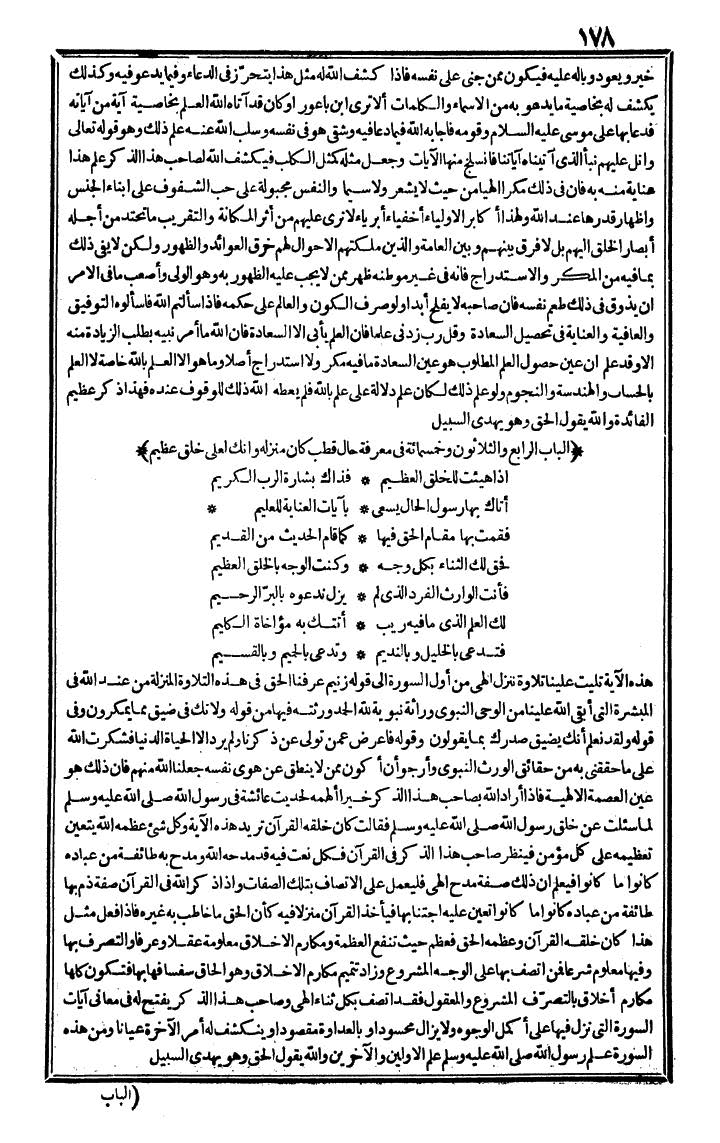 ١٧٨
خير ويعود وباله عليه فيكون ممن جنى على نفسه فاذا كشف الله له مثل هذا يتحرّز فى الدعاء وفيما يدعو فيه وكذلك
يكشف له بخاصية ما يدعو به من الاسماء والكلمات ألا ترى ابن باعور اوكان قد آتاه الله العلم بخاصية آية من آياته
فدعا بها على موسى عليه السلام وقومه فاجابه الله فيما دعا فيه وشقى هو فى نفسه وسلب الله عنه علم ذلك وهو قوله تعالى
واتل عليهم نبأ الذى آتيناه آياتنا فانسلخ منها الآيات وجعل مثله كمثل الكلب فيكشف الله لصاحب هذا الذكر علم هذا
عناية منه به فان فى ذلك مكرا الهيا من حيث لا يشعر ولا سيما والنفس مجبولة على حب الشفوف على ابناء الجنس
واظهار قدرها عند الله ولهذا أكابر الاولياء أخفياء أبرياء لا ترى عليهم من أثر المكانة والتقريب ما تحتد من أجله
أبصار الخلق اليهم بل لا فرق بينهم وبين العامة والذين ملكتهم الاحوال لهم خرق العوائد والظهور ولكن لا يفى ذلك
بما فيه من المكر والاستدراج فانه فى غير موطنه ظهر ممن لا يجب عليه الظهور به وهو الولى وأصعب ما فى الامر
ان يذوق فى ذلك طعم نفسه فان صاحبه لا يفلح أبدا ولو صرف الكون والعالم على حكمه فاذا سألتم الله فاسألوه التوفيق
والعافية والعناية فى تحصيل السعادة وقل رب زدنى علما فان العلم يأبى الا السعادة فان الله ما أمر نبيه بطلب الزيادة منه
الا وقد علم ان عين حصول العلم المطلوب هو عين السعادة ما فيه مكر ولا استدراج أصلا وما هو الا العلم بالله خاصة لا العلم
بالحساب والهندسة والنجوم ولو علم ذلك لكان علم دلالة على علم بالله فلم يعطه الله ذلك للوقوف عنده فهذا ذكر عظيم
الفائدة والله يقول الحق وهو يهدى السبيل
﴿الباب الرابع والثلاثون وخمسمائة فى معرفة حال قطب كان منزله وانك لعلى خلق عظيم﴾
اذا هيئت للخلق العظيم * فذاك بشارة الرب الكريم
أتاك بها رسول الحال يسعى * بآيات العناية للعليم *
فقمت بها مقام الحق فيها * كما قام الحديث من القديم
فحق لك الثناء بكل وجه * وكنت الوجه بالخلق العظيم
فأنت الوارث الفرد الذى لم * يزل ندعوه بالبرّ الرحيم
لك العلم الذى ما فيه ريب * أنتك به مؤاخاة الكليم
فتدعى بالخليل وبالنديم * وتدعى بالجيم وبالقسيم
هذه الآية تليت علينا تلاوة تنزل الهى من أول السورة الى قوله زنيم عرفنا الحق فى هذه التلاوة المنزلة من عند الله فى
المبشرة التى أبقى الله علينا من الوحى النبوى وراثة نبوية لله الحمد ورثته فيها من قوله ولا تك فى ضيق مما يمكرون وفى
قوله ولقد نعلم أنك يضيق صدرك بما يقولون وقوله فاعرض عمن تولى عن ذكرنا ولم يرد الا الحياة الدنيا فشكرت الله
على ما حققنى به من حقائق الورث النبوى وأرجو أن أكون ممن لا ينطق عن هوى نفسه جعلنا الله منهم فان ذلك هو
عين العصمة الالهية فاذا أراد الله بصاحب هذا الذكر خيرا ألهمه لحديث عائشة فى رسول الله صلى الله عليه وسلم
لما سئلت عن خلق رسول الله صلى الله عليه وسلم فقالت كان خلقه القرآن تريد هذه الآية وكل شئ عظمه الله يتعين
تعظيمه على كل مؤمن فينظر صاحب هذا الذكر فى القرآن فكل نعت فيه قد مدحه الله ومدح به طائفة من عباده
كانوا ما كانوا فيعلم ان ذلك صفة مدح الهى فليعمل على الاتصاف بتلك الصفات واذا ذكر الله فى القرآن صفة ذم بها
طائفة من عباده كانوا ما كانوا تعين عليه اجتنابها فيأخذ القرآن منزلا فيه كأن الحق ما خاطب به غيره فاذا فعل مثل
هذا كان خلقه القرآن وعظمه الحق فعظم حيث تنفع العظمة ومكارم الاخلاق معلومة عقلا وعرفا والتصرف بها
وفيها معلوم شرعا فمن اتصف بها على الوجه المشروع وزاد تتميم مكارم الاخلاق وهو الحاق سفسافها بها فتكون كلها
مكارم أخلاق بالتصرّف المشروع والمعقول فقد اتصف بكل ثناء الهى وصاحب هذا الذكر يفتح له فى معانى آيات
السورة التى نزل فيها على أكمل الوجوه ولا يزال محسودا وبالعداوة مقصودا وينكشف له أمر الآخرة عيانا ومن هذه
السورة علم رسول الله صلى الله عليه وسلم علم الاولين والآخرين والله يقول الحق وهو يهدى السبيل
(الباب